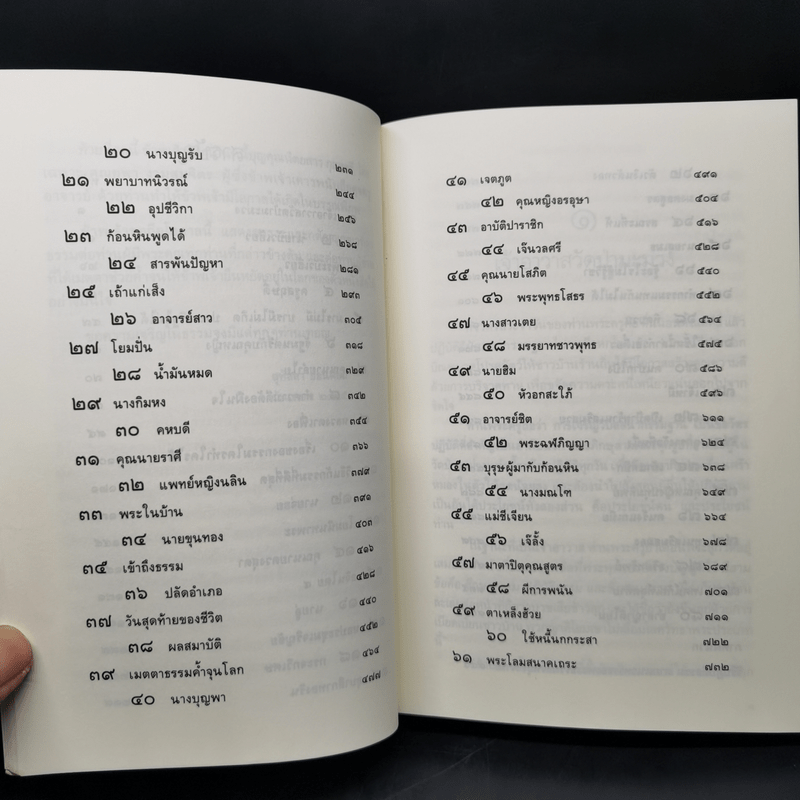 ๒๐ นางบุญรับ ๒๓๑
๒๑ พยาบาทนิวรณ์ ๒๔๔
๒๒ อุปชีวิกา ๒๕๖
๒๓ ก้อนหินพูดได้ ๒๖๘
๒๔ สารพันปัญหา ๒๘๑
๒๕ เถ้าแก่เส็ง ๒๙๓
๒๖ อาจารย์สาว ๓๐๕
๒๗ โยมปั่น ๓๑๘
๒๘ น้ำมันหมด ๓๒๙
๒๙ นางกิมหง ๓๔๒
๓๐ คหบดี ๓๕๔
๓๑ คุณนายราศี ๓๖๖
๓๒ แพทย์หญิงนลิน ๓๗๙
๓๓ พระในบ้าน ๓๙๑
๓๔ นายขุนทอง ๔๐๓
๓๕ เข้าถึงธรรม ๔๑๖
๓๖ ปลัดอำเภอ ๔๒๘
๓๗ วันสุดท้ายของชีวิต ๔๔๐
๓๘ ผลสมาบัติ ๔๕๒
๓๙ เมตตาธรรมค้ำจุนโลก ๔๖๔
๔๐ นางบุญพา ๔๗๗
๔๑ เจตภูต ๔๙๑
๔๒ คุณหญิงอรอุษา ๕๐๔
๔๓ อาบัติปาราชิก ๕๑๖
๔๔ เจ๊นวลศรี ๕๒๘
๔๕ คุณนายโสภิต ๕๔๐
๔๖ พระพุทธโสธร ๕๕๒
๔๗ นางสาวเตย ๕๖๔
๔๘ มรรยาทชาวพุทธ ๕๗๕
๔๙ นายฮิม ๕๘๖
๕๐ หัวอกสะใภ้ ๕๙๖
๕๑ อาจารย์ชิต ๖๑๑
๕๒ พระฉฬภิญญา ๖๒๔
๕๓ บุรุษผู้มากับก้อนหิน ๖๓๘
๕๔ นางมณโฑ ๖๔๙
๕๕ แม่ชีเจียน ๖๖๔
๕๖ เจ๊ลั้ง ๖๗๘
๕๗ มาตาปิตุคุณสูตร ๖๘๙
๕๘ ผีการพนัน ๗๐๑
๕๙ ตาเหล็งฮ้วย ๗๑๑
๖๐ ใช้หนี้นกกระสา ๗๒๒
๖๑ พระโลมสนาคเถระ ๗๓๒